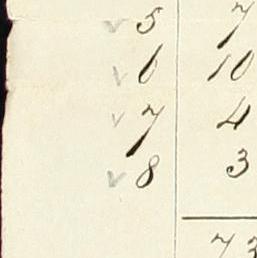 ✓ 5 7
✓ 6 10
✓ 7 4
✓ 8 3
73